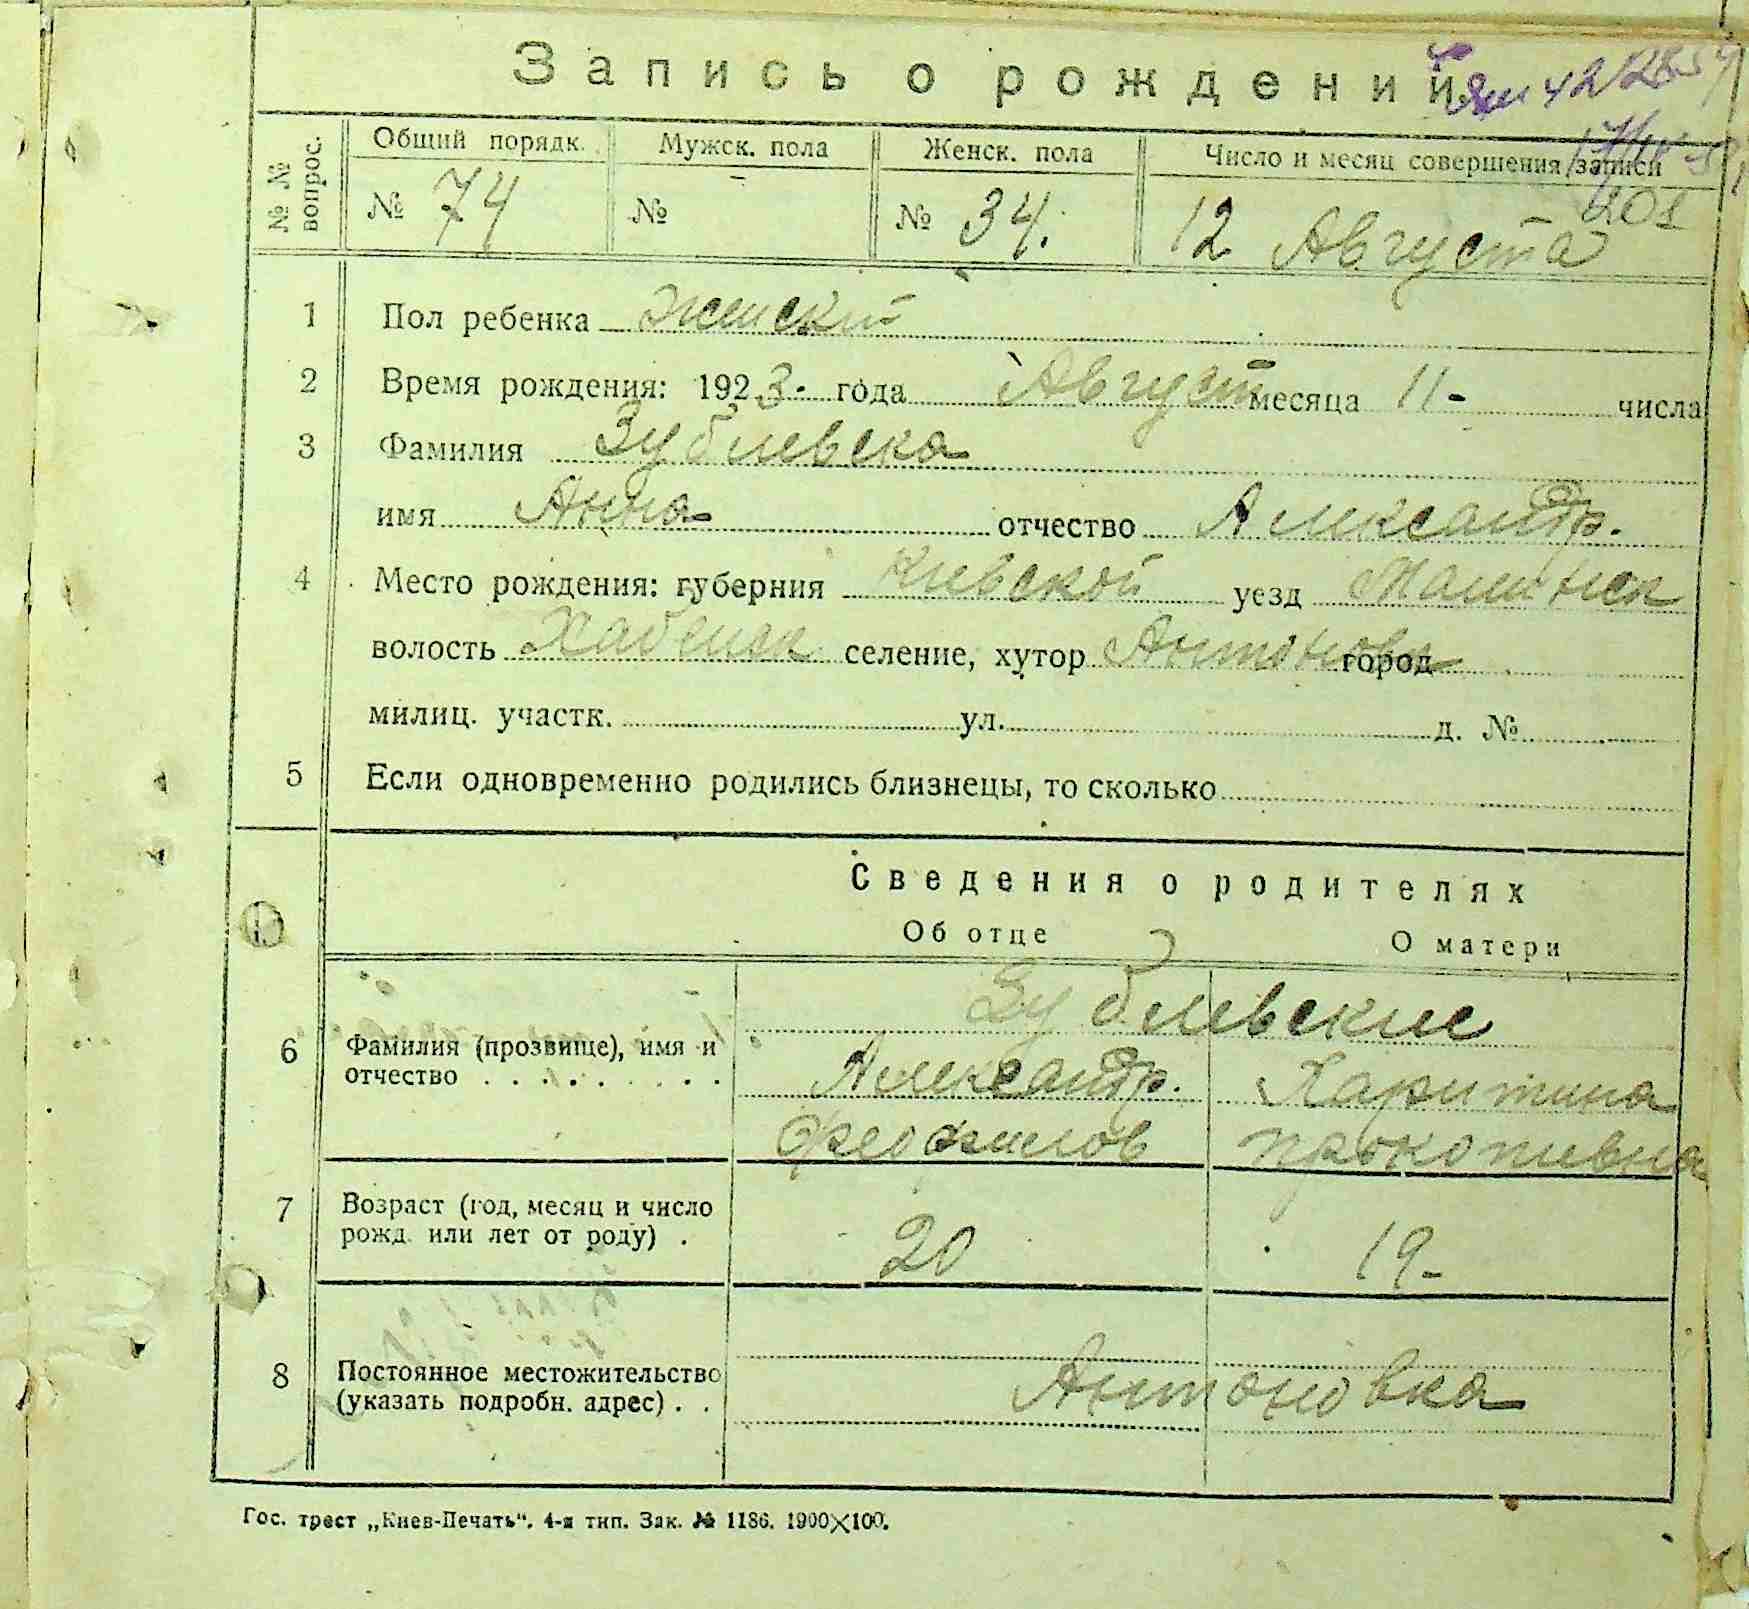 Запись о рождении
№№ вопрос. Общий порядк. Мужск. пола Женск. пола Число и месяц совершения записи
№ 74 № - № 34. 12 Августа
201
1 Пол ребенка женский
2 Время рождения: 1923 года Август месяца 11- числа
3 Фамилия Зублевска
имя Анна отчество Александр.
4 Место рождения: губерния Киевской уезд Малинск
волость Хабенск селение, хутор Антоновка город
милиц. участк. ул. д. №
5 Если одновременно родились близнецы, то сколько
Сведения о родителях
Об отце О матери
Зублевские
6 Фамилия (прозвище), имя и отчество Александр. Харитина
Феофилов Прокопивна
7 Возраст (год, месяц и число
рожд. или лет от роду) . 20 19-
8 Постоянное местожительство
(указать подробн. адрес) . . Антоновка
Гос. трест „Киев-Печать“. 4-я тип. Зак. № 1186. 1900×100.